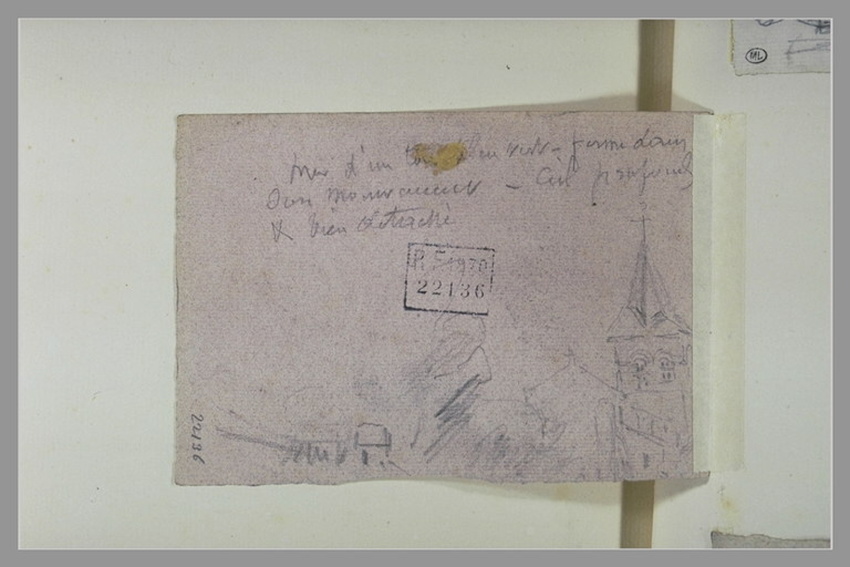 d'un vert - ferme dans
son mouvement - Ciel profond
& bien détaché
R F 1970
22136
22136
ML